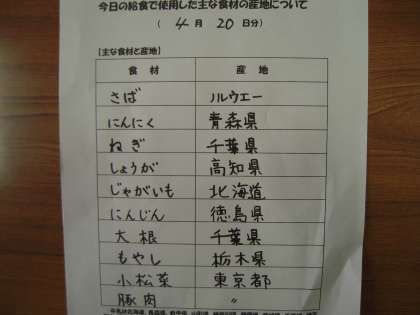 今日の給食で使用した主な食材の産地について
( 4 月 20 日分)
【主な食材と産地】
食 材 産 地
さば ノルウエー
にんにく 青森県
ねぎ 千葉県
しょうが 高知県
じゃがいも 北海道
にんじん 徳島県
大根 千葉県
もやし 栃木県
小松菜 東京都
豚肉 〃